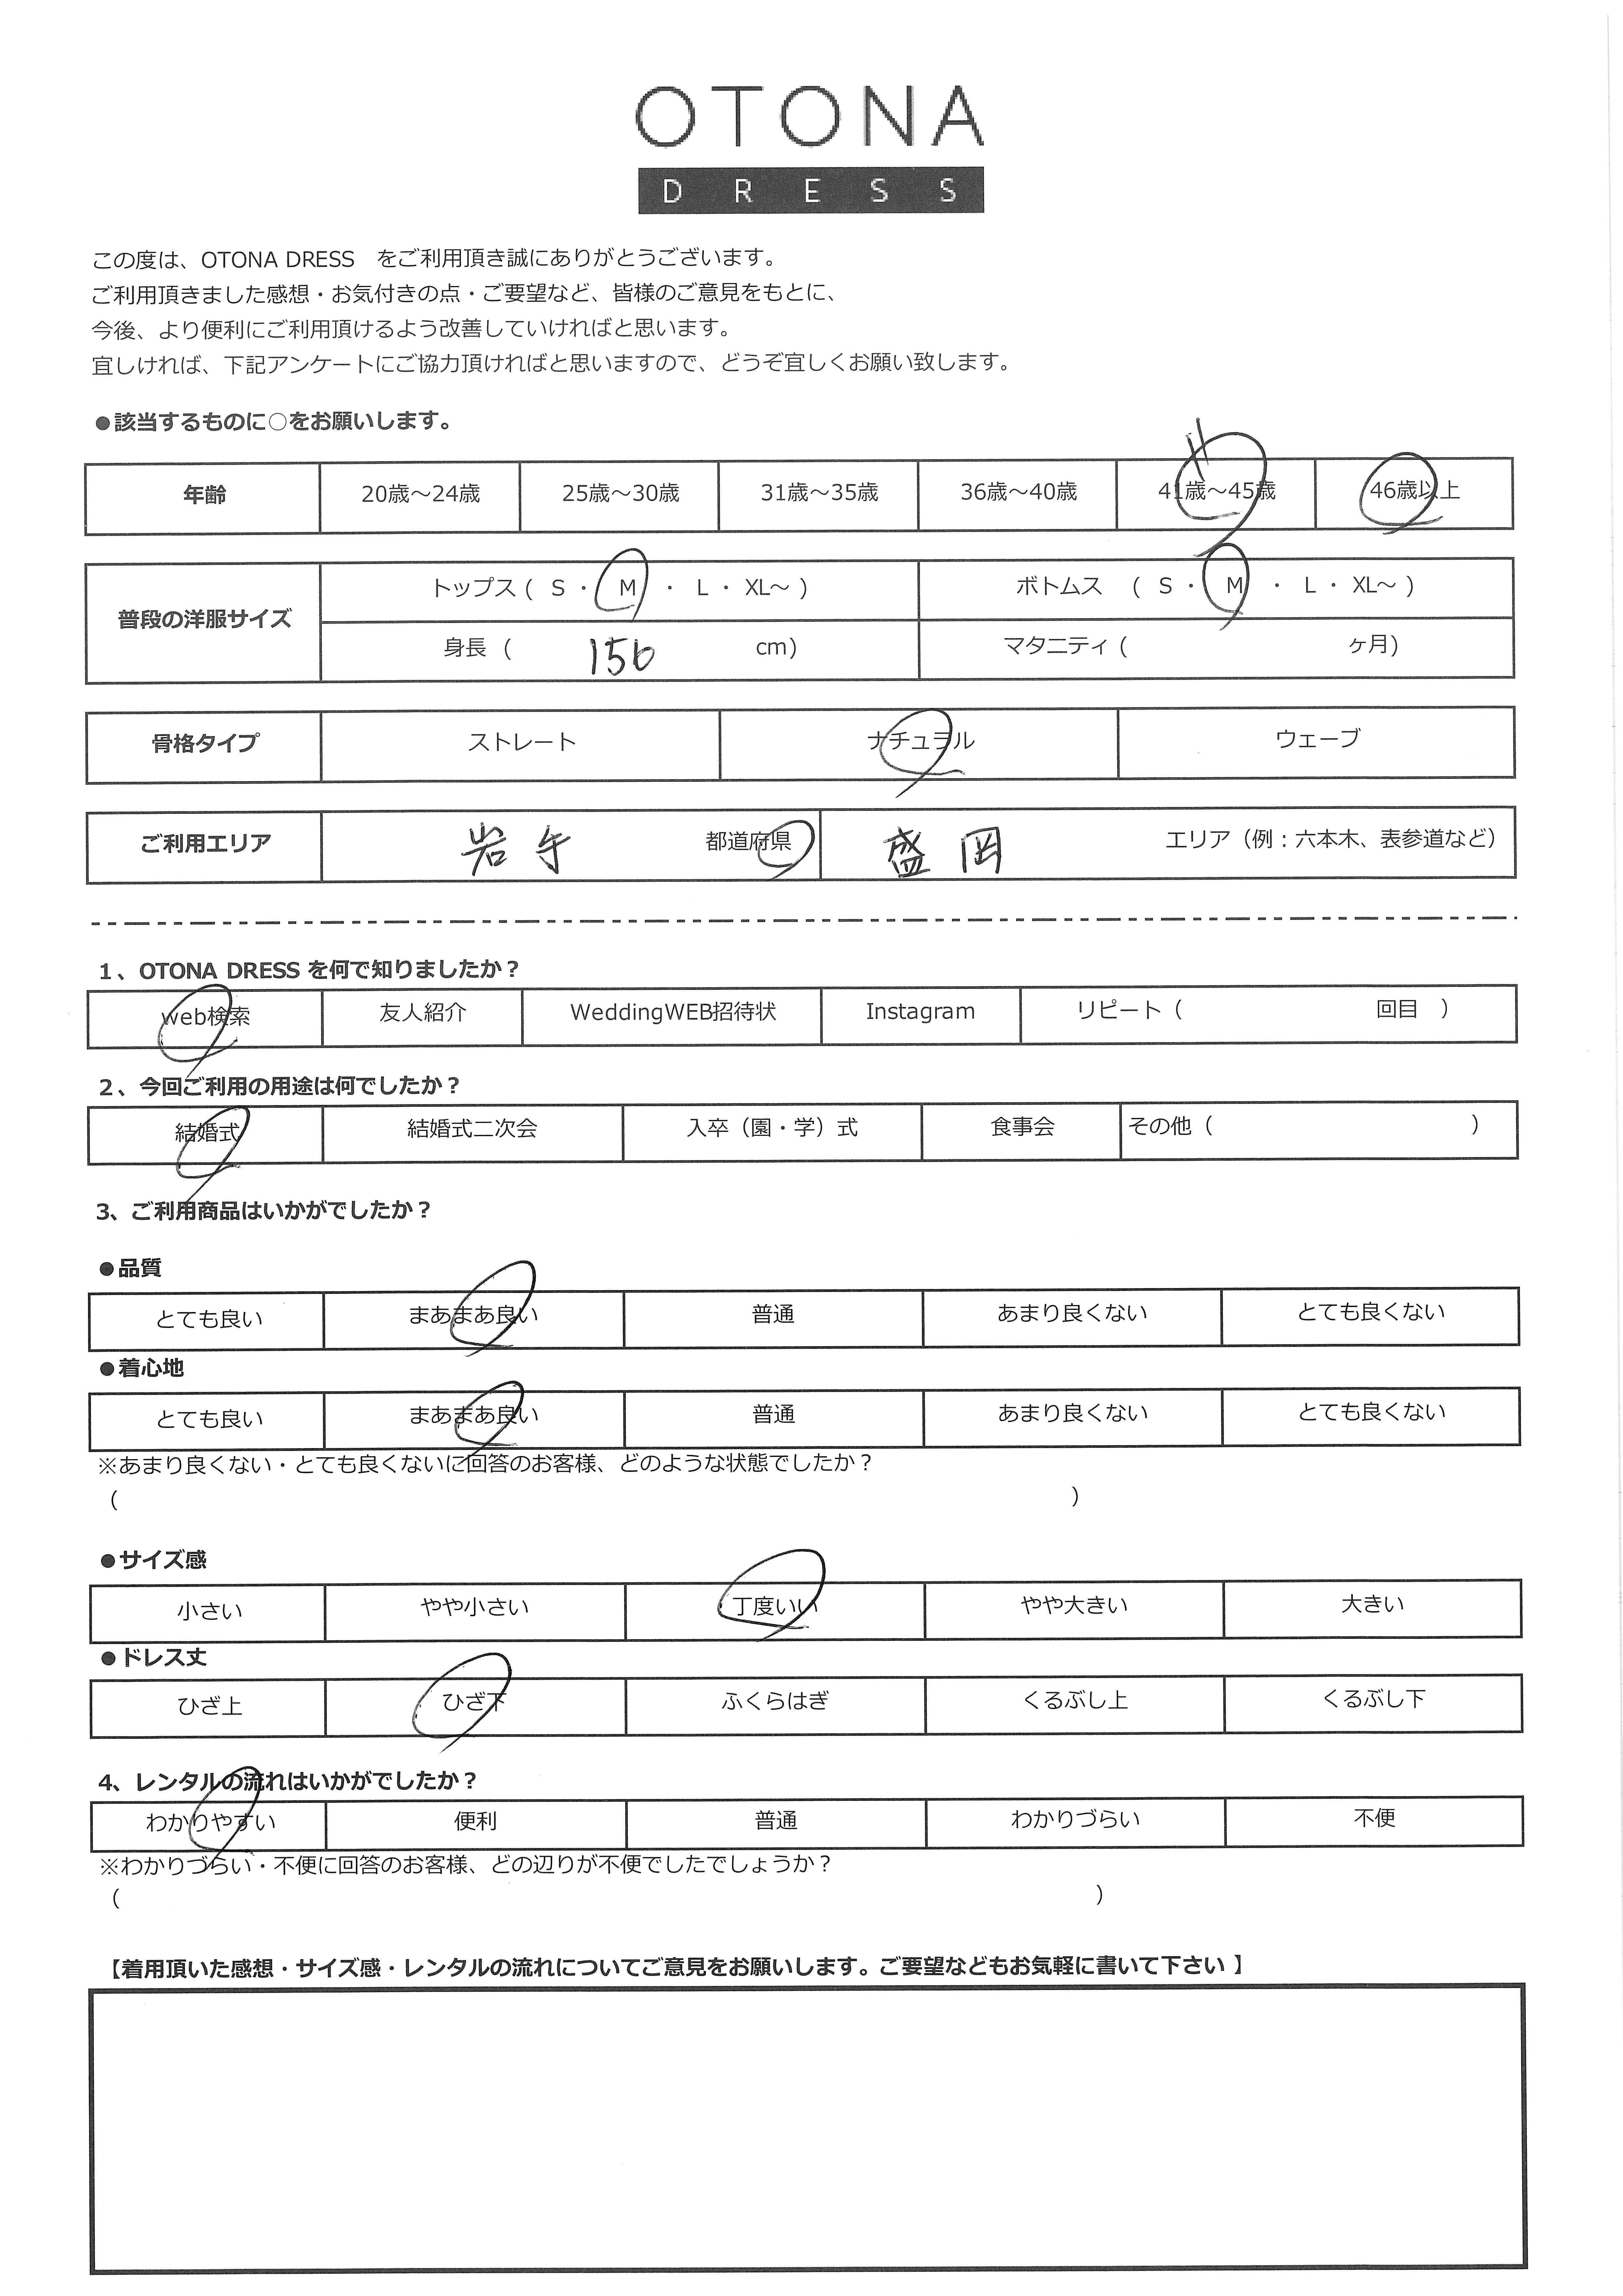 OTONA
DRESS
この度は、OTONA DRESS　をご利用頂き誠にありがとうございます。
ご利用頂きました感想・お気付きの点・ご要望など、皆様のご意見をもとに、
今後、より便利にご利用頂けるよう改善していければと思います。
宜しければ、下記アンケートにご協力頂ければと思いますので、どうぞ宜しくお願い致します。
●該当するものに○をお願いします。
年齢 20歳～24歳 25歳～30歳 31歳～35歳 36歳～40歳 41歳～45歳 46歳以上
普段の洋服サイズ
トップス ( S ・ M ・ L ・ XL～ ) ボトムス ( S ・ M ・ L ・ XL～ )
身長 ( 156 cm) マタニティ ( ヶ月)
骨格タイプ ストレート ナチュラル ウェーブ
ご利用エリア 岩手 都道府県 盛岡 エリア（例：六本木、表参道など）
1、OTONA DRESS を何で知りましたか？
web検索 友人紹介 WeddingWEB招待状 Instagram リピート（ 回目 ）
2、今回ご利用の用途は何でしたか？
結婚式 結婚式二次会 入卒（園・学）式 食事会 その他（ ）
3、ご利用商品はいかがでしたか？
●品質
とても良い まあまあ良い 普通 あまり良くない とても良くない
●着心地
とても良い まあまあ良い 普通 あまり良くない とても良くない
※あまり良くない・とても良くないに回答のお客様、どのような状態でしたか？
（ ）
●サイズ感
小さい やや小さい 丁度いい やや大きい 大きい
●ドレス丈
ひざ上 ひざ下 ふくらはぎ くるぶし上 くるぶし下
4、レンタルの流れはいかがでしたか？
わかりやすい 便利 普通 わかりづらい 不便
※わかりづらい・不便に回答のお客様、どの辺りが不便でしたでしょうか？
（ ）
【着用頂いた感想・サイズ感・レンタルの流れについてご意見をお願いします。ご要望などもお気軽に書いて下さい 】